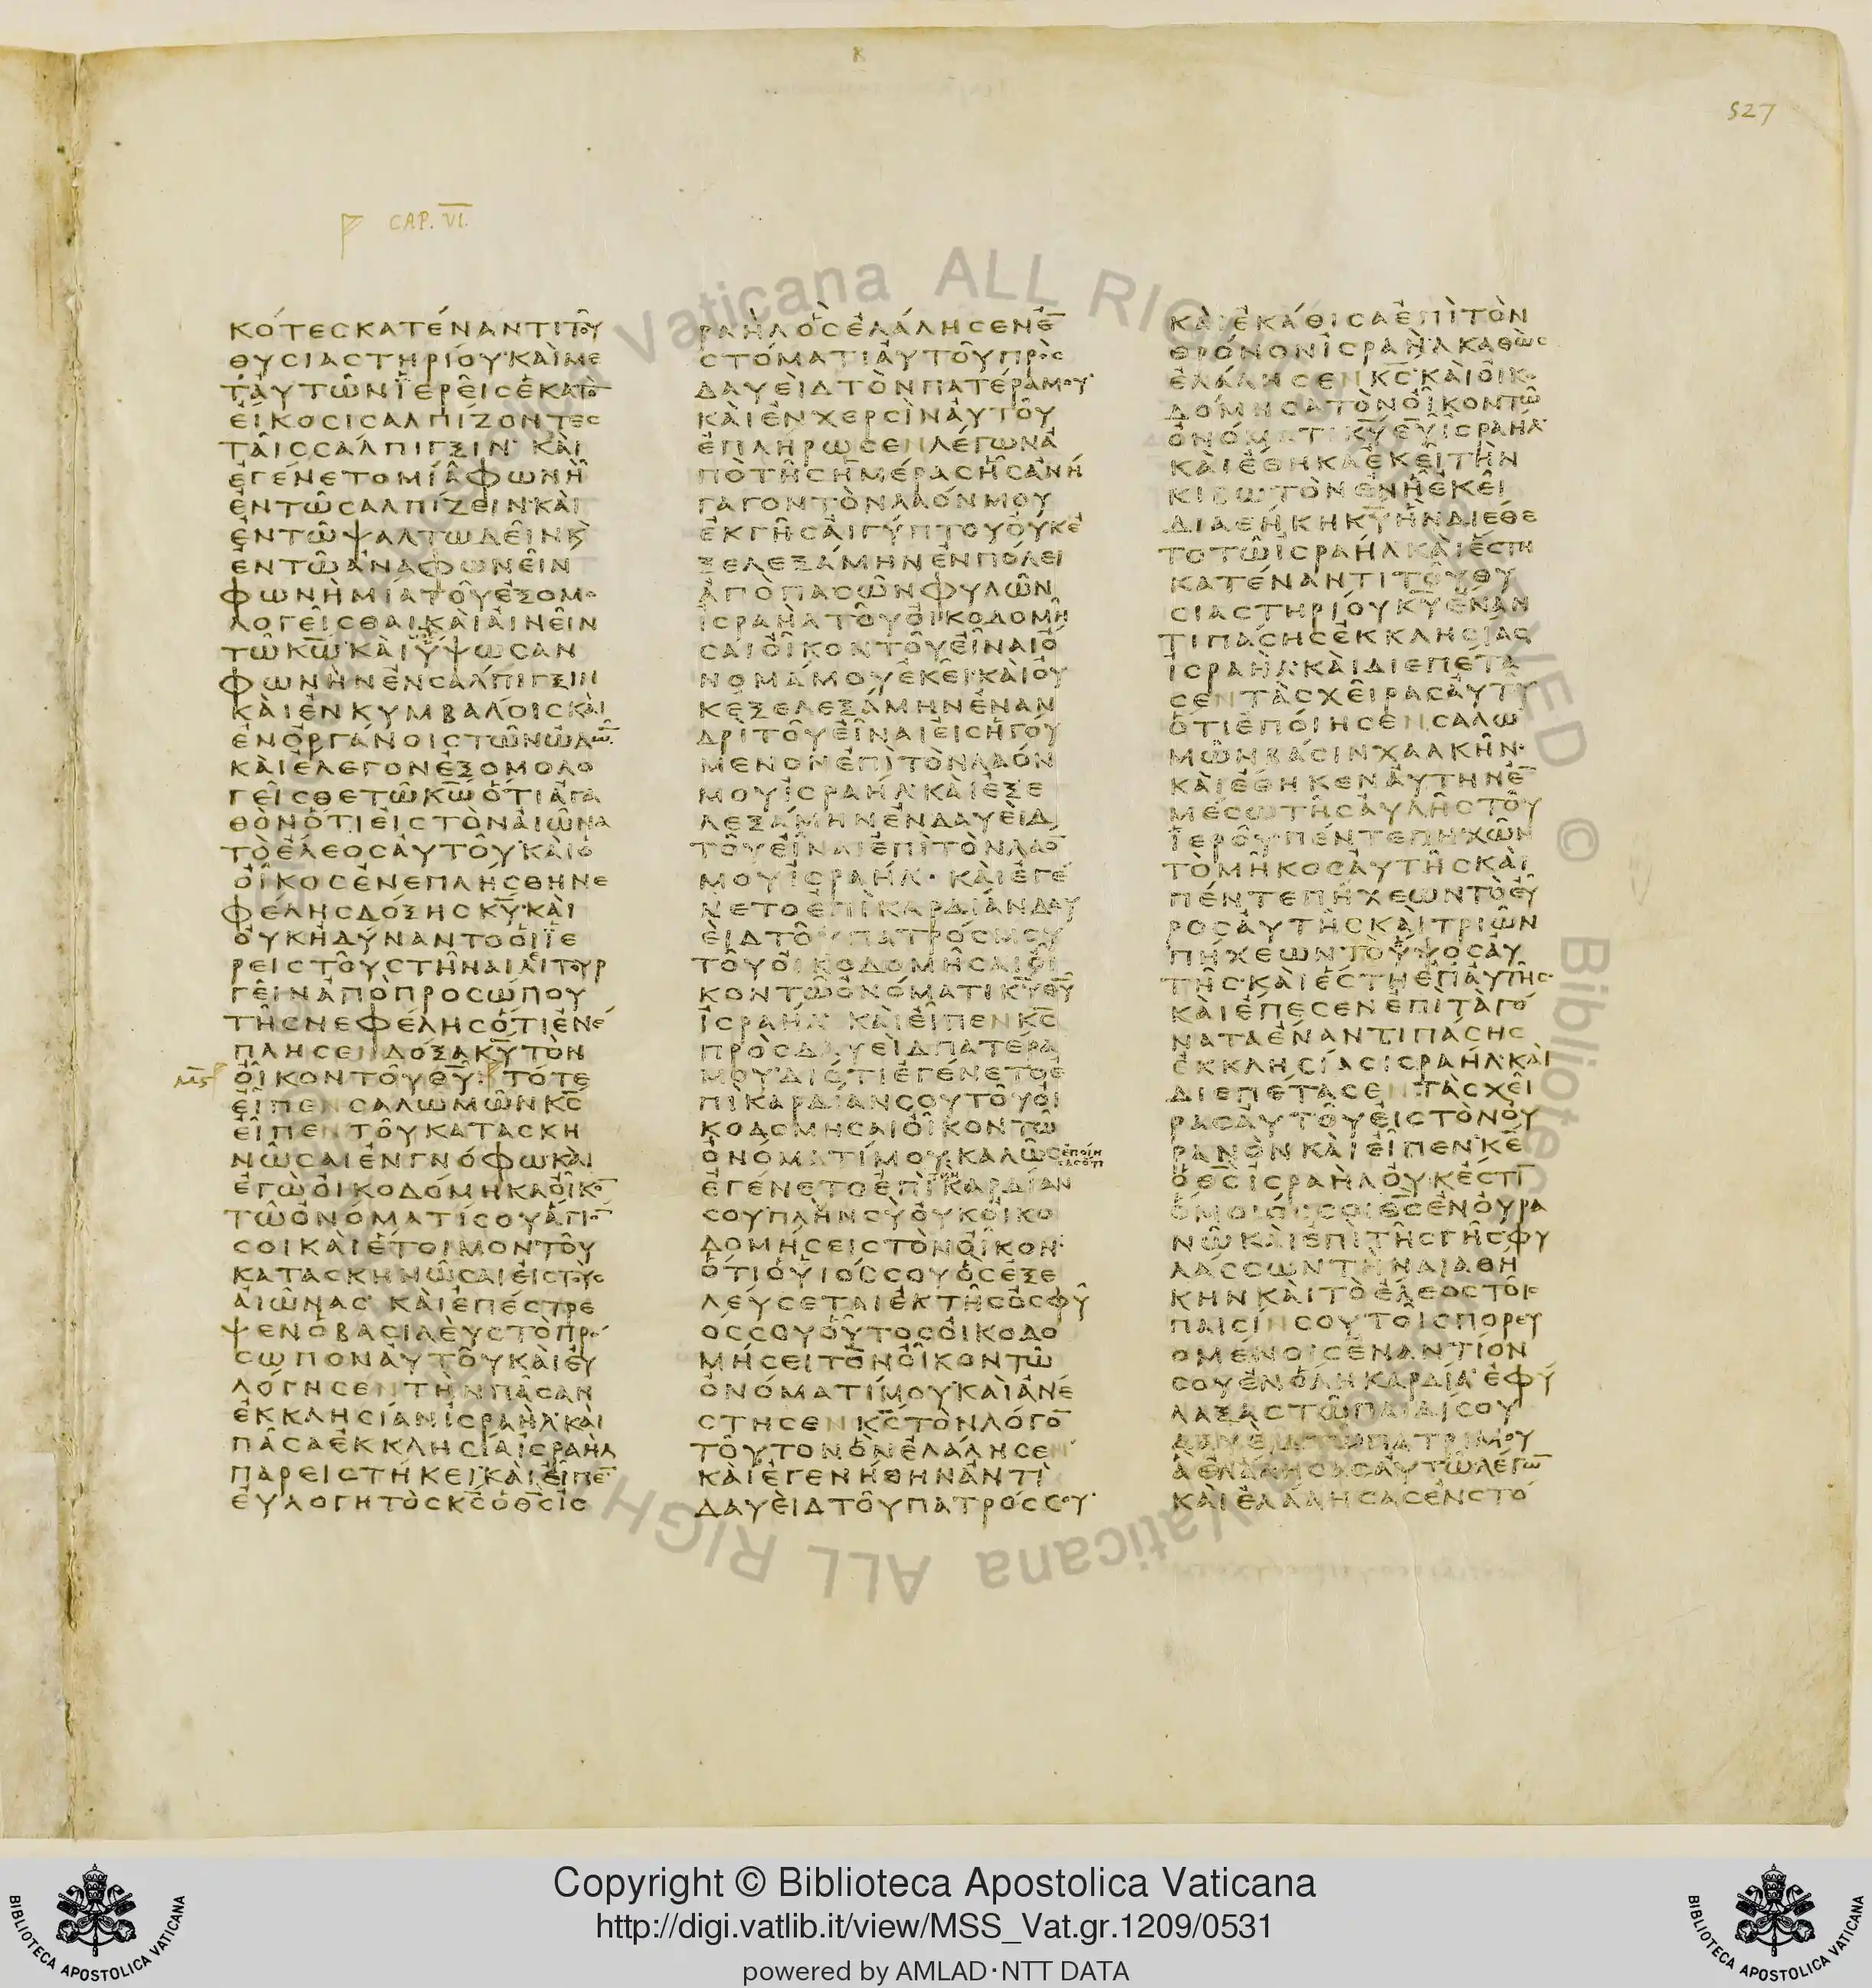 527
CAP. VI.
κότεσκατέναντιτοῦ
θυσιαστηρίουκαὶμε
τἀυτῶνἱερεῖσἑκατὸ
εἴκοσισαλπίζοντεσ
ταῖσσάλπιγξιν καὶ
ἐγένετομίαφωνὴ
ἐντῶσαλπίζεινκαὶ
ἐντῶψαλτωδεῖνκ
ἐντῶἀναφωνεῖν
φωνῆμίατοῦἐξομο
λογεῖσθαικαὶαἰνεῖν
τῶκω καὶὕψωσαν
φωνὴνἐνσάλπιγξιν
καὶἐνκυμβάλοισκαὶ
ἐνὀργάνοιστῶνὠδῶ
καὶἔλεγονἐξομολο
γεῖσθετῶκωὅτιἀγα
θὸνὅτιεἰστὸναἰῶνα
τὸἔλεοσἀυτοῦκαὶὁ
οἶκοσἐνεπλήσθηνε
φέλησδόξησκυκαὶ
οὐκἠδύναντοοἱἱε
ρεῖστοῦστῆναιλιτουρ
γεῖνἀπὸπροσώπου
τῆσνεφέλησὅτιἐνέ
πλησενδόξακυτὸν
οἶκοντοῦθυ τότε
εἶπενσαλωμῶνκσ
εἶπεντοῦκατασκη
νῶσαιἐνγνόφωκαὶ
ἐγὼοἰκοδόμηκαοἶκο
τῶὀνόματίσουἅγιο
σοικαὶἕτοιμοντοῦ
κατασκηνῶσαιεἰστοὺσ
αἰῶνασ καὶἐπέστρε
ψενὁβασιλεὺστὸπρό
σωπονἀυτοῦκαὶεὐ
λόγησεντὴνπᾶσαν
ἐκκλησίανἰσραὴλκαὶ
πᾶσαἐκκλησίαἰσραὴλ
παρειστήκεικαὶεἶπε
εὐλογητὸσκσὁθσἰσ
ραὴλὃσἐλάλησενἐ
στόματιἀυτοῦπρὸσ
δαυεὶδτὸνπατέραμου
καὶἐνχερσὶνἀυτοῦ
ἐπλήρωσενλέγωνἀ
πὸτῆσἡμέρασἧσἀνή
γαγοντὸνλαόνμου
ἐκγῆσἀιγύπτουοὐκἐ
ξελεξάμηνἐνπόλει
ἀπὸπασῶνφυλῶν
ἰσραὴλτοῦοἰκοδομῆ
σαιοἶκοντοῦεἶναιὄ
νομάμουἐκεῖκαὶοὐ
κἐξελεξάμηνἐναν
δρὶτοῦεἶναιεἰσἡγού
μενονἐπὶτὸνλαόν
μουἰσραὴλκαὶἐξε
λεξάμηνἐνδαυεὶδ
τοῦεἶναιἐπὶτὸνλαό
μουἰσραὴλ καὶἐγέ
νετοἐπὶκαρδίανδαυ
εὶδτοῦπατρόσμου
τοῦοἰκοδομῆσαιοἶ
κοντῶὀνόματικυθυ
ἰσραὴλ καὶεἶπενκσ
πρὸσδαυεὶδπατέρα
μουδιότιἐγένετοἐ
πὶκαρδίανσουτοῦοἰ
κοδομῆσαιοἶκοντῶ
ὀνόματίμουκαλῶσἐποίη
σασὅτι
ἐγένετοἐπὶκαρδίαν
σουπλὴνσὺοὐκοἰκο
δομήσειστὸνοἶκον
ὅτιὁυἱόσσουὃσἐξε
λεύσεταιἐκτῆσὀσφύ
οσσουοὗτοσοἰκοδο
μήσειτὸνοἶκοντῶ
ὀνόματίμουκαὶἀνέ
στησενκστὸνλόγο
τοῦτονὃνἐλάλησεν
καὶἐγενήθηνἀντὶ
δαυεὶδτοῦπατρόσμου
καὶἐκάθισαἐπὶτὸν
θρόνονἰσραὴλκαθὼσ
ἐλάλησενκσκαὶοἰκο
δόμησατὸνοἶκοντῶ
ὀνόματικυθυἰσραὴλ
καὶἔθηκαἐκεῖτὴν
κιβωτὸνἐνἧἐκεῖ
διαθήκηκυἣνδιέθε
τοτῶἰσραὴλκαὶἔστη
κατέναντιτοῦθυ
σιαστηρίουκυἔναν
τιπάσησἐκκλησίασ
ἰσραὴλκαὶδιεπέτα
σεντὰσχεῖρασἀυτοῦ
ὅτιἐποίησενσαλω
μῶνβάσινχαλκῆν
καὶἔθηκενἀυτὴνἐ
μέσωτῆσἀυλῆστοῦ
ἱεροῦπέντεπηχῶν
τὸμῆκοσἀυτῆσκαὶ
πέντεπήχεωντὸεὖ
ροσἀυτῆσκαὶτριῶν
πήχεωντὸὕψοσἀυ
τῆσκαὶἔστηἐπἀυτῆσ
καὶἔπεσενἐπὶτὰγό
ναταἔναντιπάσησ
ἐκκλησίασἰσραὴλκαὶ
διεπέτασεντὰσχεῖ
ρασἀυτοῦεἰστὸνοὐ
ρανὸνκαὶεἶπενκε
ὁθσἰσραὴλοὐκἔστι
ὅμοιόσσοιθσἐνοὐρα
νῶκαὶἐπὶτῆσγῆσφυ
λάσσωντὴνδιαθή
κηνκαὶτὸἔλεοστοῖσ
παισίνσουτοῖσπορευ
ομένοισἐναντίον
σουἐνὅληκαρδίαἐφύ
λαξαστῶπαιδίσου
δαυεὶδτῶπατρίμου
ἃἐλάλησασἀυτῶλέγω
καὶἐλάλησασἐνστό
Copyright © Biblioteca Apostolica Vaticana
http://digi.vatlib.it/view/MSS_Vat.gr.1209/0531
powered by AMLAD·NTT DATA
BIBLIOTECA APOSTOLICA VATICANA
BIBLIOTECA APOSTOLICA VATICANA